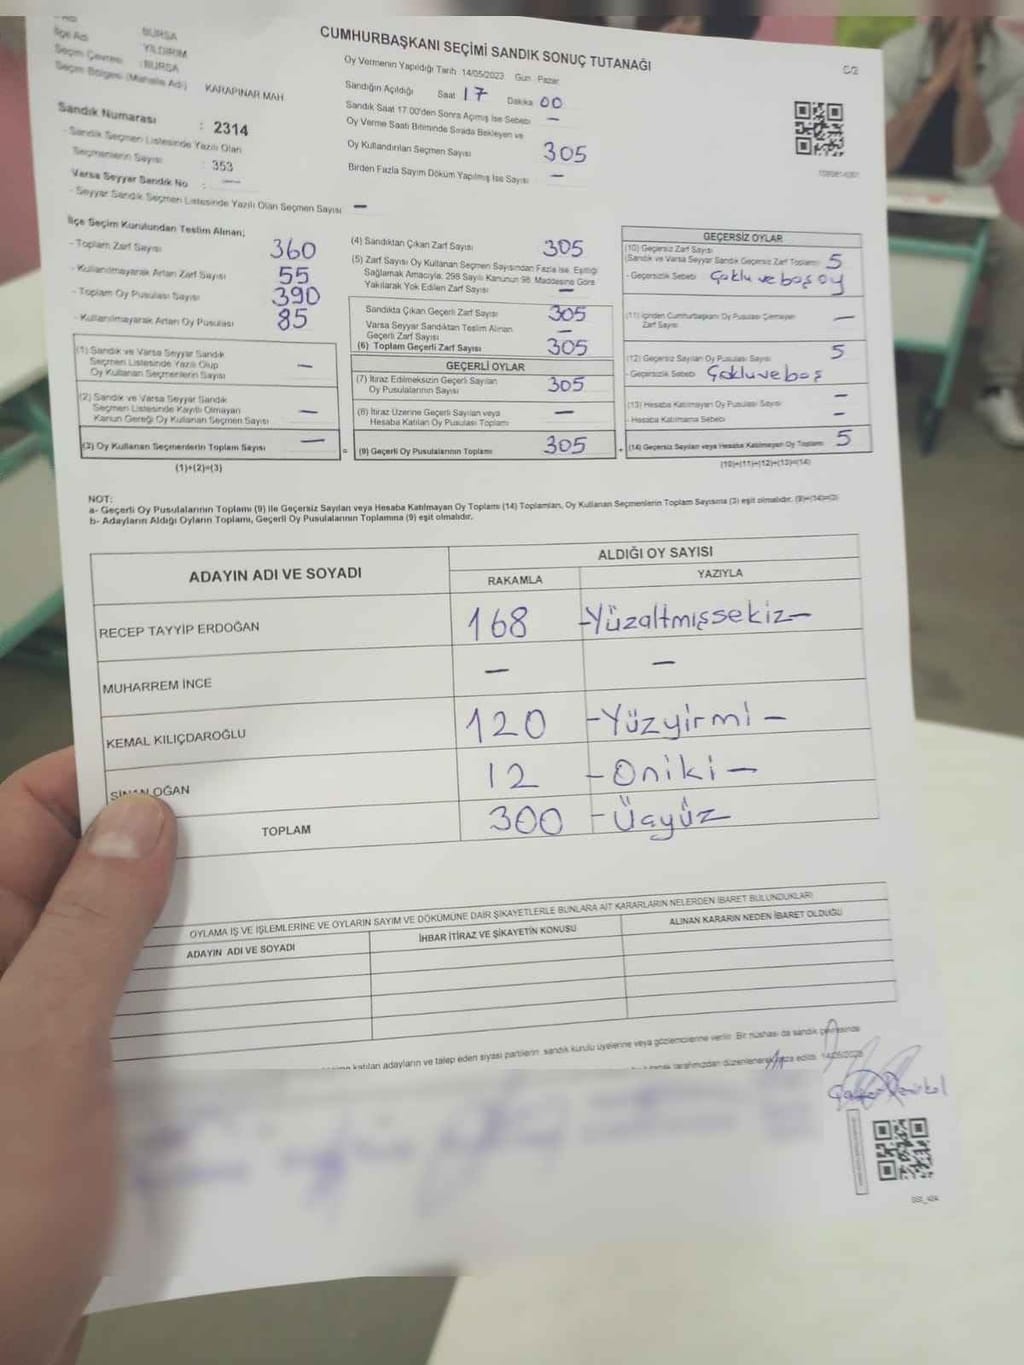 İlçe Adı BURSA
Seçim Çevresi YILDIRIM
: BURSA
Seçim Bölgesi (Mahalle Adı) KARAPINAR MAH
Sandık Numarası : 2314
- Sandık Seçmen Listesinde Yazılı Olan
Seçmenlerin Sayısı : 353
Varsa Seyyar Sandık No : —
- Seyyar Sandık Seçmen Listesinde Yazılı Olan Seçmen Sayısı —
CUMHURBAŞKANI SEÇİMİ SANDIK SONUÇ TUTANAĞI
C/2
Oy Vermenin Yapıldığı Tarih 14/05/2023 Gün Pazar
Sandığın Açıldığı Saat 17 Dakika 00
Sandık Saat 17.00'den Sonra Açmış İse Sebebi —
Oy Verme Saati Bitiminde Sırada Bekleyen ve
Oy Kullandırılan Seçmen Sayısı 305
Birden Fazla Sayım Döküm Yapılmış İse Sayısı —
İlçe Seçim Kurulundan Teslim Alınan;
- Toplam Zarf Sayısı 360
- Kullanılmayarak Artan Zarf Sayısı 55
- Toplam Oy Pusulası Sayısı 390
- Kullanılmayarak Artan Oy Pusulası 85
(1) Sandık ve Varsa Seyyar Sandık
Seçmen Listesinde Yazılı Olup
Oy Kullanan Seçmenlerin Sayısı —
(2) Sandık ve Varsa Seyyar Sandık
Seçmen Listesinde Kayıtlı Olmayan
Kanun Gereği Oy Kullanan Seçmen Sayısı —
(3) Oy Kullanan Seçmenlerin Toplam Sayısı —
(1)+(2)=(3)
(4) Sandıktan Çıkan Zarf Sayısı 305
(5) Zarf Sayısı Oy Kullanan Seçmen Sayısından Fazla İse, Eşitliği
Sağlamak Amacıyla, 298 Sayılı Kanunun 98. Maddesine Göre
Yakılarak Yok Edilen Zarf Sayısı —
Sandıkta Çıkan Geçerli Zarf Sayısı 305
Varsa Seyyar Sandıktan Teslim Alınan
Geçerli Zarf Sayısı —
(6) Toplam Geçerli Zarf Sayısı 305
GEÇERLİ OYLAR
(7) İtiraz Edilmeksizin Geçerli Sayılan
Oy Pusulalarının Sayısı 305
(8) İtiraz Üzerine Geçerli Sayılan veya
Hesaba Katılan Oy Pusulası Toplamı —
= (9) Geçerli Oy Pusulalarının Toplamı 305
GEÇERSİZ OYLAR
(10) Geçersiz Zarf Sayısı
(Sandık ve Varsa Seyyar Sandık Geçersiz Zarf Toplamı) 5
- Geçersizlik Sebebi Çoklu ve boş oy
(11) İçinden Cumhurbaşkanı Oy Pusulası Çıkmayan
Zarf Sayısı —
(12) Geçersiz Sayılan Oy Pusulası Sayısı 5
- Geçersizlik Sebebi Çoklu ve boş
(13) Hesaba Katılmayan Oy Pusulası Sayısı —
- Hesaba Katılmama Sebebi —
+ (14) Geçersiz Sayılan veya Hesaba Katılmayan Oy Toplamı 5
(10)+(11)+(12)+(13)=(14)
NOT:
a- Geçerli Oy Pusulalarının Toplamı (9) ile Geçersiz Sayılan veya Hesaba Katılmayan Oy Toplamı (14) Toplamları, Oy Kullanan Seçmenlerin Toplam Sayısına (3) eşit olmalıdır. (9)+(14)=(3)
b- Adayların Aldığı Oyların Toplamı, Geçerli Oy Pusulalarının Toplamına (9) eşit olmalıdır.
ADAYIN ADI VE SOYADI
ALDIĞI OY SAYISI
RAKAMLA YAZIYLA
RECEP TAYYİP ERDOĞAN 168 -Yüzaltmışsekiz-
MUHARREM İNCE — —
KEMAL KILIÇDAROĞLU 120 -Yüzyirmi-
SİNAN OĞAN 12 -Oniki-
TOPLAM 300 -Üçyüz
OYLAMA İŞ VE İŞLEMLERİNE VE OYLARIN SAYIM VE DÖKÜMÜNE DAİR ŞİKAYETLERLE BUNLARA AİT KARARLARIN NELERDEN İBARET BULUNDUKLARI
ADAYIN ADI VE SOYADI İHBAR İTİRAZ VE ŞİKAYETİN KONUSU ALINAN KARARIN NEDEN İBARET OLDUĞU
katılan adayların ve talep eden siyasi partilerin sandık kurulu üyelerine veya gözlemcilerine verilir. Bir nüshası da sandık çevresinde
tarafımızdan düzenlenerek imza edildi. 14/05/2023